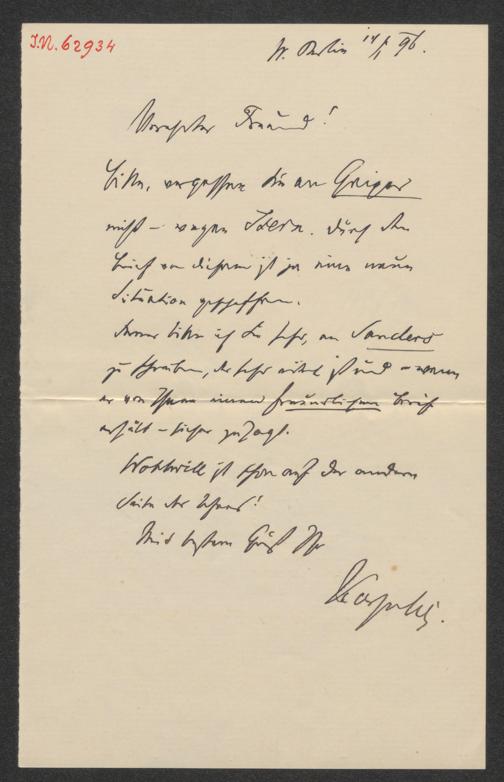 I.N. 62934
W. Berlin 14/1 96.
Verehrter Freund!
Bitte, vergessen Sie an Geiger
nicht – wegen Stern. Durch den
Brief von diesem ist ja eine neue
Situation geschaffen.
Ferner bitte ich Sie sehr, an Sanders
zu schreiben, der sehr eitel ist und – wenn
er von Ihnen einen freundlichen Brief
erhält – sicher zusagt.
Wohlwill ist schon auf der andern
Seite der
Mit bestem Gruß Ihr
Karpeles.